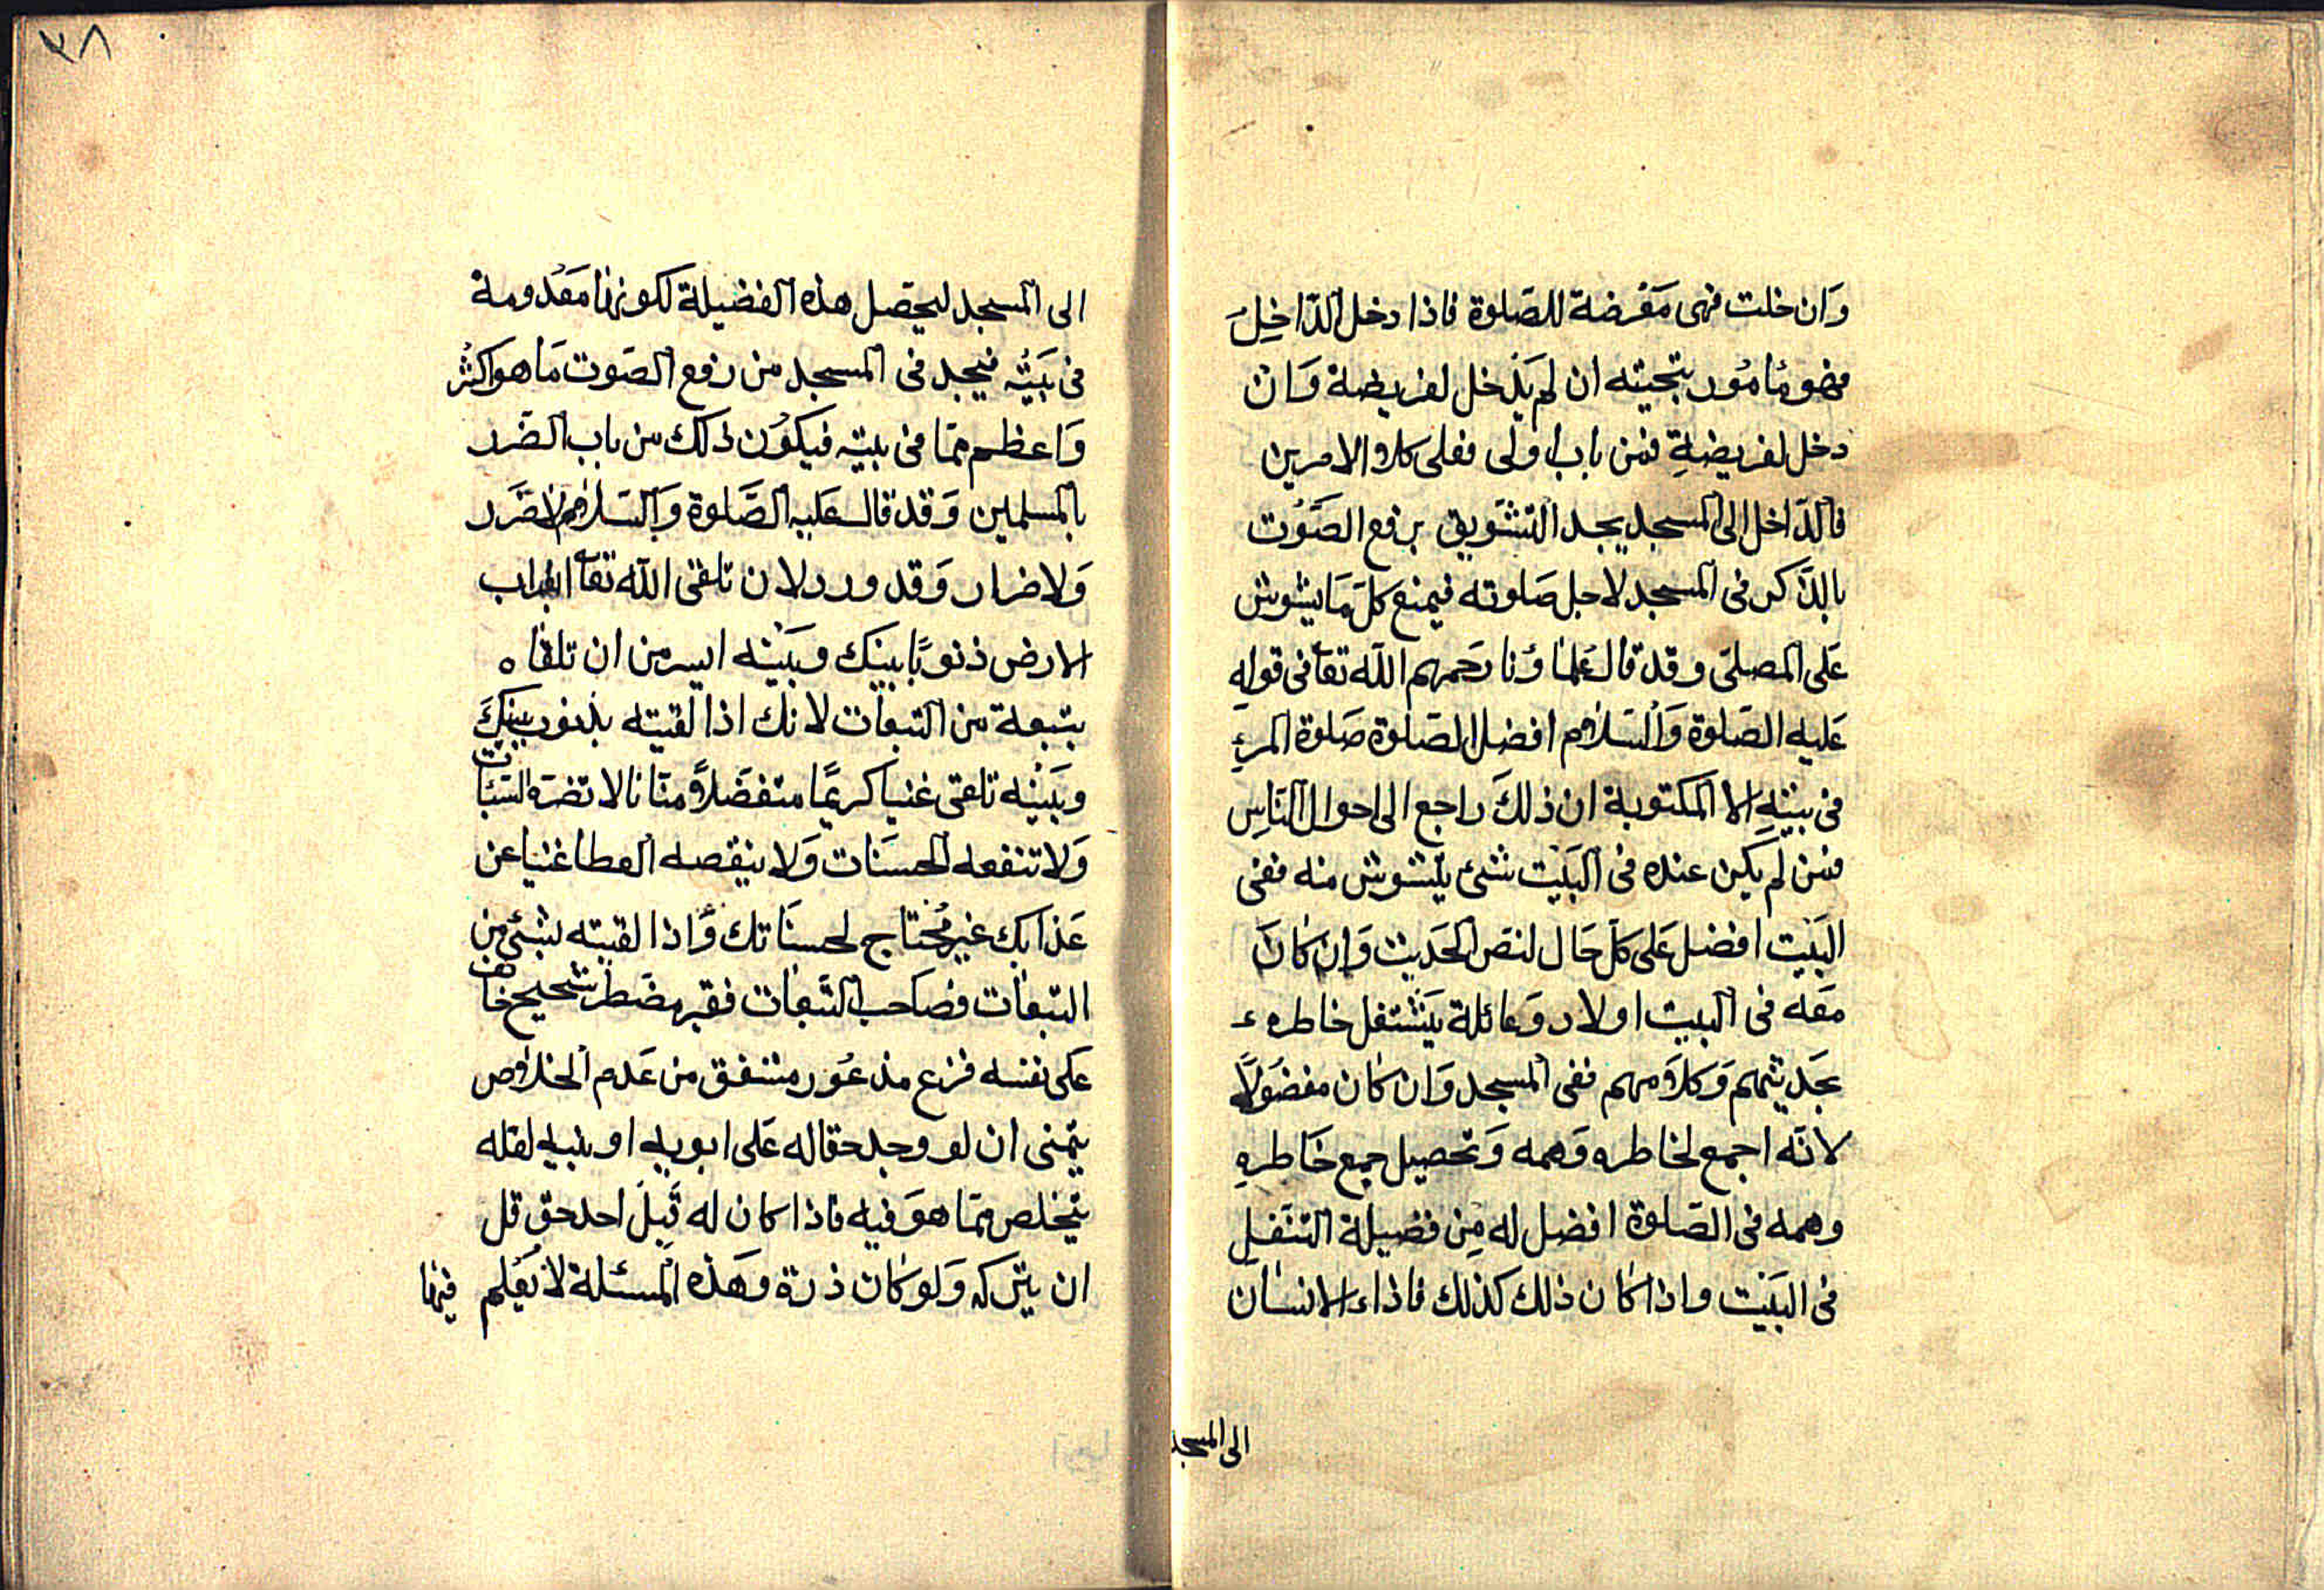 وَان خلت فهى مَعْرضة للصَلوة فاذا دخل الدّاخِلَ
فهو مَامُور بتحيته ان لم يَدْخل لفريضة وَان
دخل لفريضةِ فمن باب اولى فعلى كلا الامرين
فالدّاخل الى المسجد يجد التشويق برفع الصَّوت
بالذّكر فى المسجد لاجل صَلوته فيمنع كلّ مَا يشوش
عَلى المصلّى وقد قال عُلمَاؤنا رَحمهم الله تعآ فى قولهِ
عَليه الصَلوة وَالسَلام افضل الصَلوة صَلوة المرءِ
فى بيتهِ الا المكتوبة ان ذلكَ راجع الى احوال النّاسِ
فمن لم يَكن عنده فى البَيْت شئ يتشوش منه ففى
البَيْت افضل عَلى كلّ حَال لنصّ الحَديث وَان كانَ
معَه فى البيت اولاد وَعائلة يَشْتغل خاطره
بحَديثهم وَكلامهم ففى المسجد وَان كان مفضُولاً
لانّه اجمع لخاطره وَهمه وَتحصيل جمع خَاطرهِ
وهمه فى الصَلوة افضل له مِن فضيلة التنفّلِ
فى البَيْت واذا كان ذلك كذلك فاذا الانسان
الى المسجد
٣٨
الى المسجد ليحصّل هذه الفضيلة لكونها مَعْدومة
فى بَيْته فيجد فى المسجد من رفع الصَوت مَا هو اكثرُ
وَاعظم ممّا فى بيته فيكُون ذلك من باب الضّرر
بالمسلمين وَقد قال عَليه الصَّلوة وَالسَلام لا ضَرر
وَلا ضرار وَقد ورد لان تلقى الله تعآ بقراب
الارض ذنوبًا بينَك وبَيْنه ايسر من ان تلقاه
بتبعة من التبعات لانك اذا لقيته بذنوب بينكَ
وبَيْنه تلقى غنيا كريمًا متفضّلاً منّانا لا تضرّه السَيئات
وَلا تنفعه الحسَنات وَلا ينقصه العطا غنيا عن
عَذابك غير مُحْتاج لحسنَاتك وَاذا لقيته بشئ من
التبعات فصَاحب التّبعات فقير مضطر شحيح خائف
عَلى نفسه فزع مذعُور مشفق من عَدم الخلاص
يتمنى ان لو وجد حقا له عَلى ابويه او بنيه لعله
يتخلص ممّا هوَ فيه فاذا كان له قِبلَ احد حقّ قلّ
ان يتركه وَلو كان ذرة وهَذه المسئلة لا يَعْلم فيها